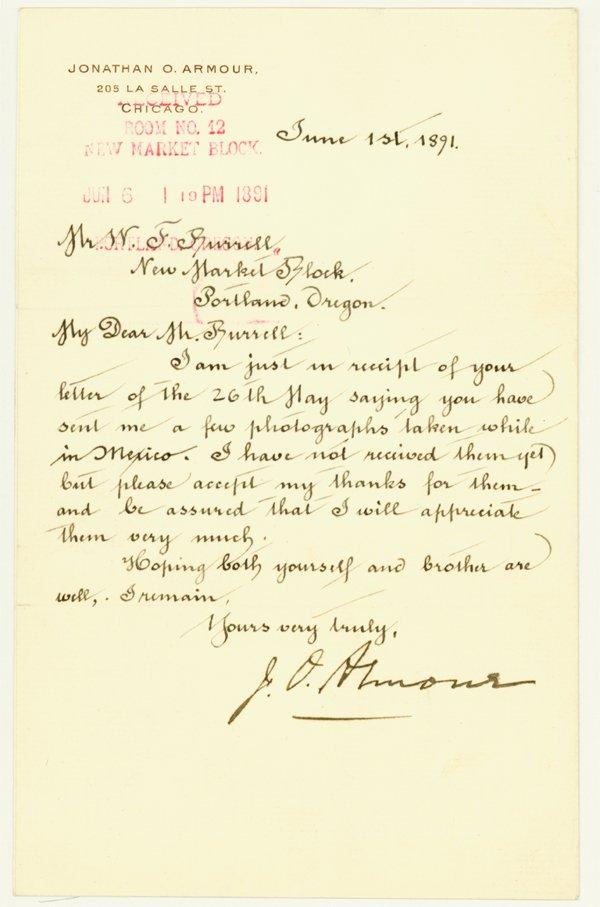 JONATHAN O. ARMOUR,
205 LA SALLE ST.
CHICAGO.
RECEIVED
ROOM NO. 12
NEW MARKET BLOCK.
JUN 6 1 19 PM 1891
June 1st, 1891.
Mr. W. F. Burrell,
New Market Block.
Portland, Oregon.
My Dear Mr. Burrell:
I am just in receipt of your
letter of the 26th May saying you have
sent me a few photographs taken while
in Mexico. I have not received them yet
but please accept my thanks for them -
and be assured that I will appreciate
them very much.
Hoping both yourself and brother are
well, I remain,
Yours very truly,
J. O. Armour